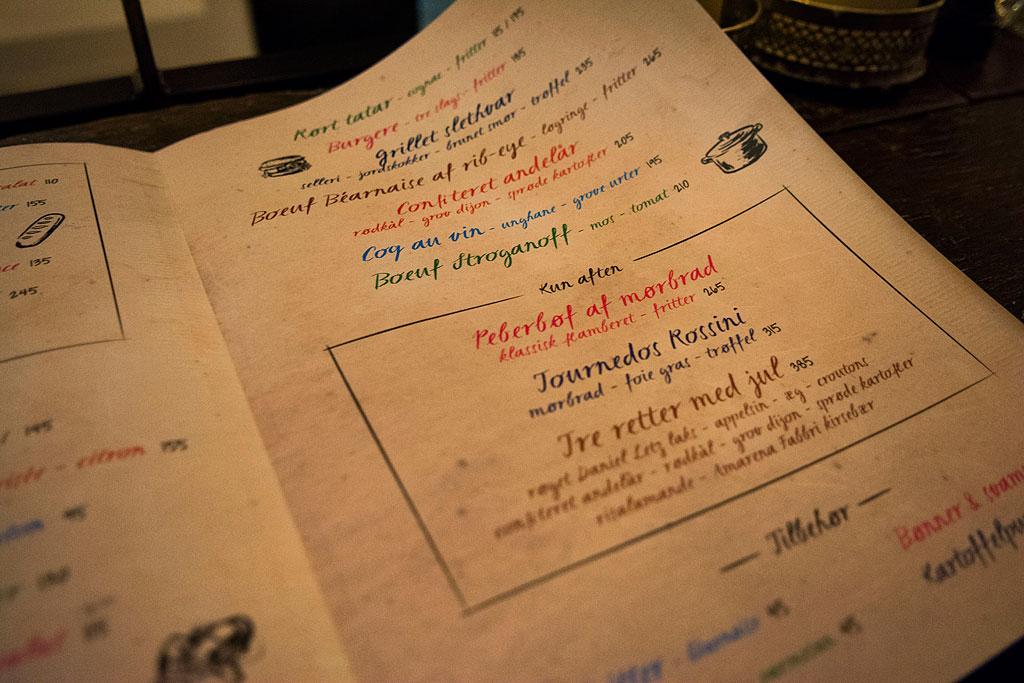 110
155
135
245
195
citron 155
95
Kort tatar - cognac - fritter 115 / 195
Burgere - tre slags - fritter 185
Grillet slethvar
selleri - jordskokker - brunet smør - trøffel 235
Boeuf Béarnaise af rib-eye - løgringe - fritter 265
Confiteret andelår
rødkål - grov dijon - sprøde kartofler 205
Coq au vin - unghane - grove urter 195
Boeuf Stroganoff - mos - tomat 210
Kun aften
Peberbøf af mørbrad
klassisk flamberet - fritter 265
Tournedos Rossini
mørbrad - foie gras - trøffel 315
Tre retter med jul 385
røget Daniel Letz laks - appelsin - æg - croutons
confiteret andelår - rødkål - grov dijon - sprøde kartofler
risalamande - Amarena Fabbri kirsebær
Tilbehør
Bønner &
45
45